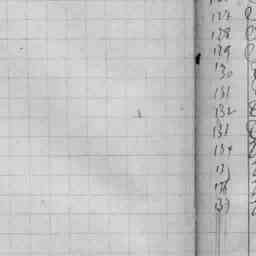 127
128
129
130
131
132
133
134
135
136
137